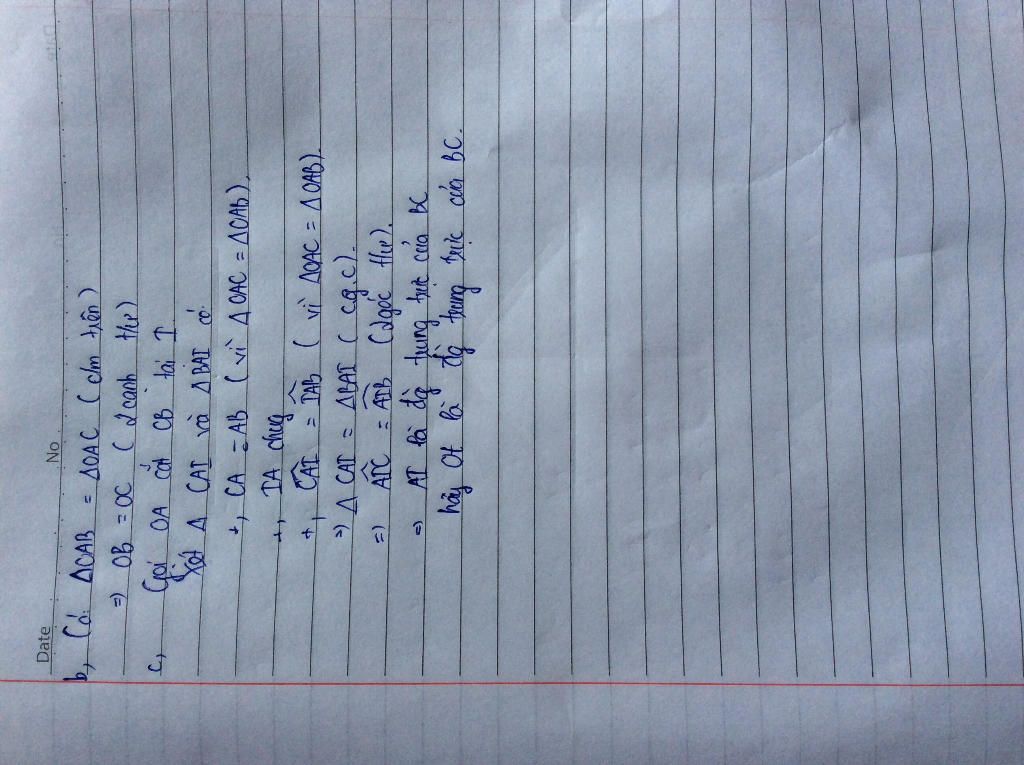 Date No
b, Có: ΔOAB = ΔOAC (c/m trên)
=> OB = OC (2 cạnh t/ư)
c, Gọi OA cắt CB tại I
Xét Δ CAI và ΔBAI có:
+, CA = AB (vì ΔOAC = ΔOAB).
+, IA chug
+, CAI = IAB (vì ΔOAC = ΔOAB).
=> Δ CAI = ΔBAI (c.g.c).
=> AIC = AIB (2 góc t/ư).
=> AI là đg trung trực của BC
hay Ot là đg trung trực của BC.